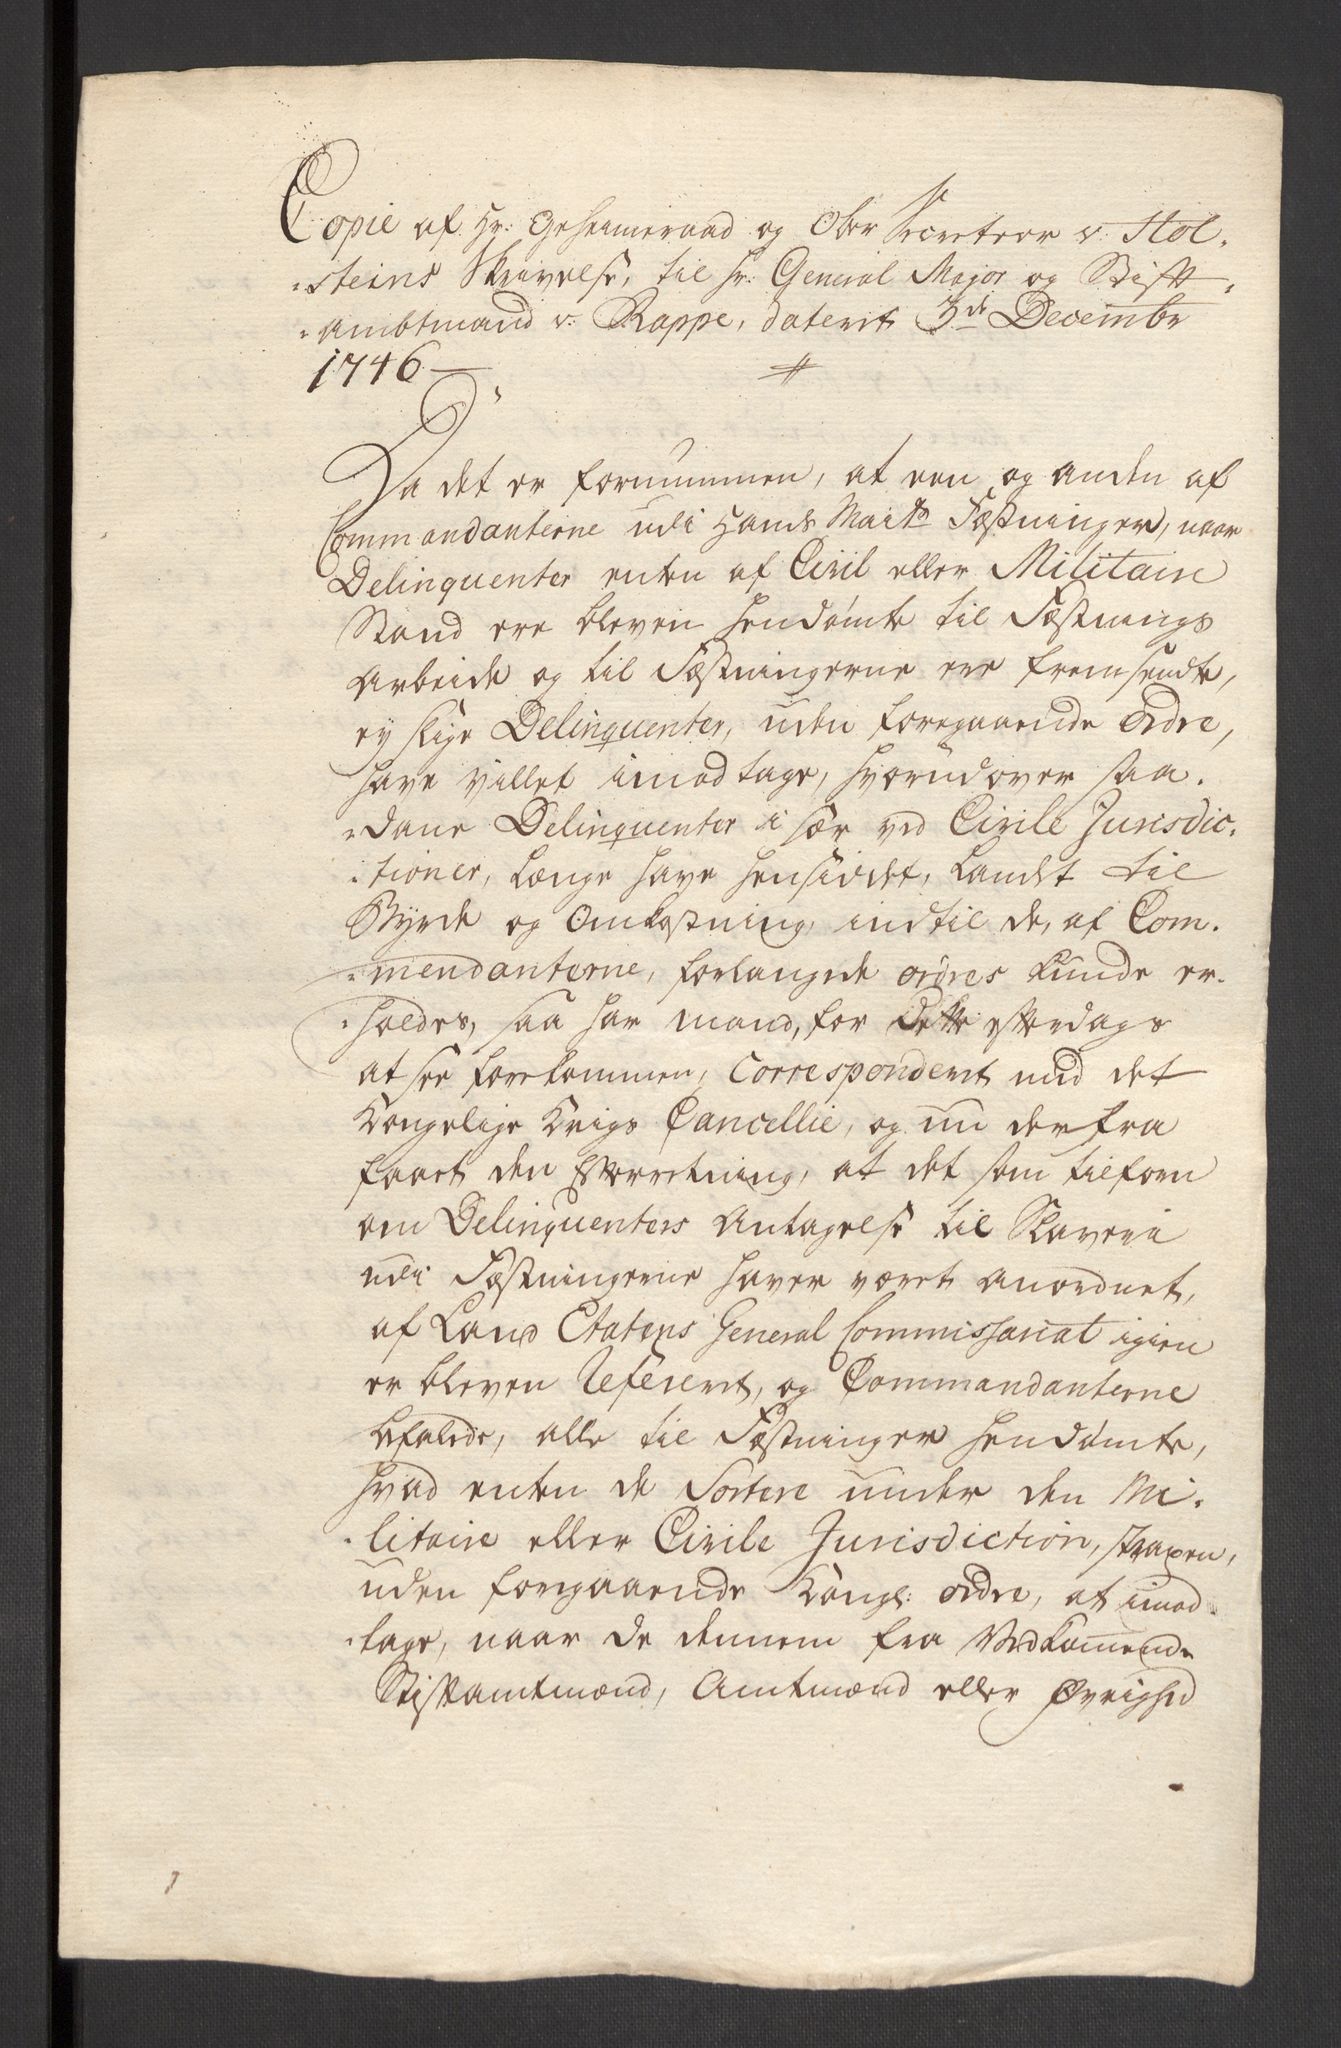 Copie af Hr: Geheimeraad og Ober Secreteer v. Hol-
steins Skrivelse, til Hr: General Major og Stift-
ambtmand v. Rappe, daterit 3de Decembr
1746
Da det er fornummen, at een og anden af
Commandanterne udi Hands Maits Fæstninger, naar
Delinquenter enten af Civil eller Militair
Stand ere bleven hendømte til Fæstnings
Arbeide og til Fæstningerne ere fremsendte,
ey slige Delinquenter, uden foregaaende ordre,
have villet imodtage, hvorudover saa-
dane Delinquenter i sær ved Civile Jurisdic-
tioner, længe have hensiddet, Landet til
Byrde og Omkostning, indtil de, af Com-
mendanterne, forlangede ordres kunde er-
holdes, saa har mand, for dette efterdags
at see forekommen, Correspondert med det
Kongelige Krigs Cancellie, og nu derfra
faaet den Efterretning, at det som tilforn
om Delinquenters Antagelse til Slaverie
udi Fæstningerne haver været anordnet,
af Land Etatens General Commissariat igien
er bleven Refererit, og Commandanterne
befalede, alle til Fæstninger hendømte,
hvad enten de Sortere under den Mi-
litaire eller Civile Jurisdiction, straxen,
uden forgaaende Kongl: ordre, at imod-
tage, naar de dennem fra Vedkommende
Stiftamtmænd, Amtmænd eller Øvrighed